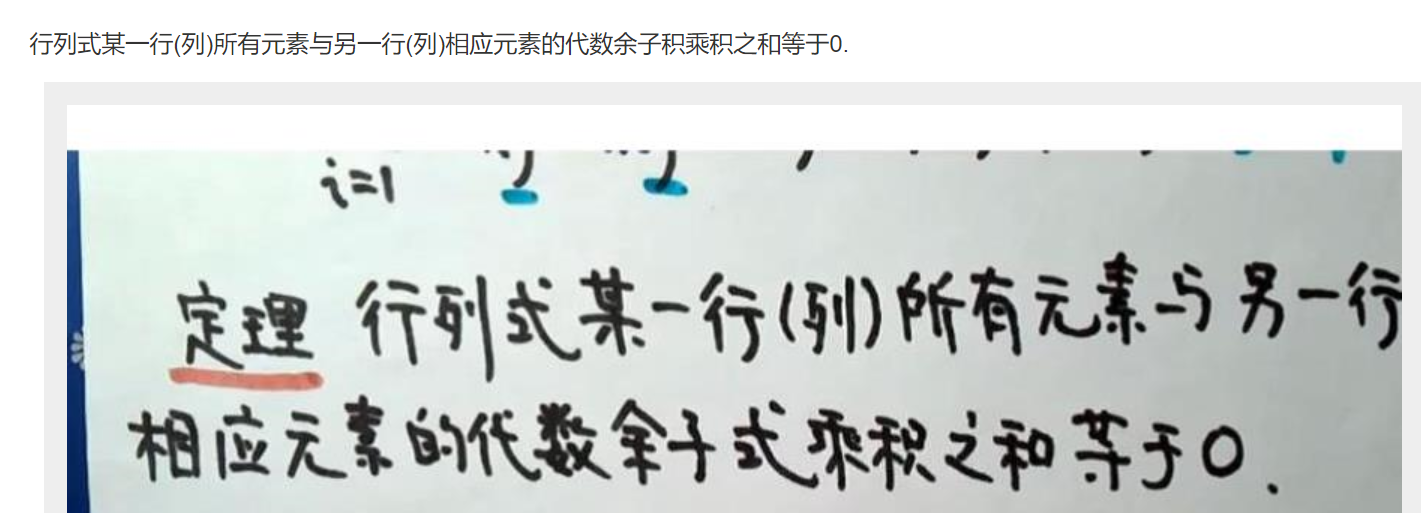 行列式某一行(列)所有元素与另一行(列)相应元素的代数余子积乘积之和等于0.
i=1
定理 行列式某一行(列)所有元素与另一行
相应元素的代数余子式乘积之和等于0.